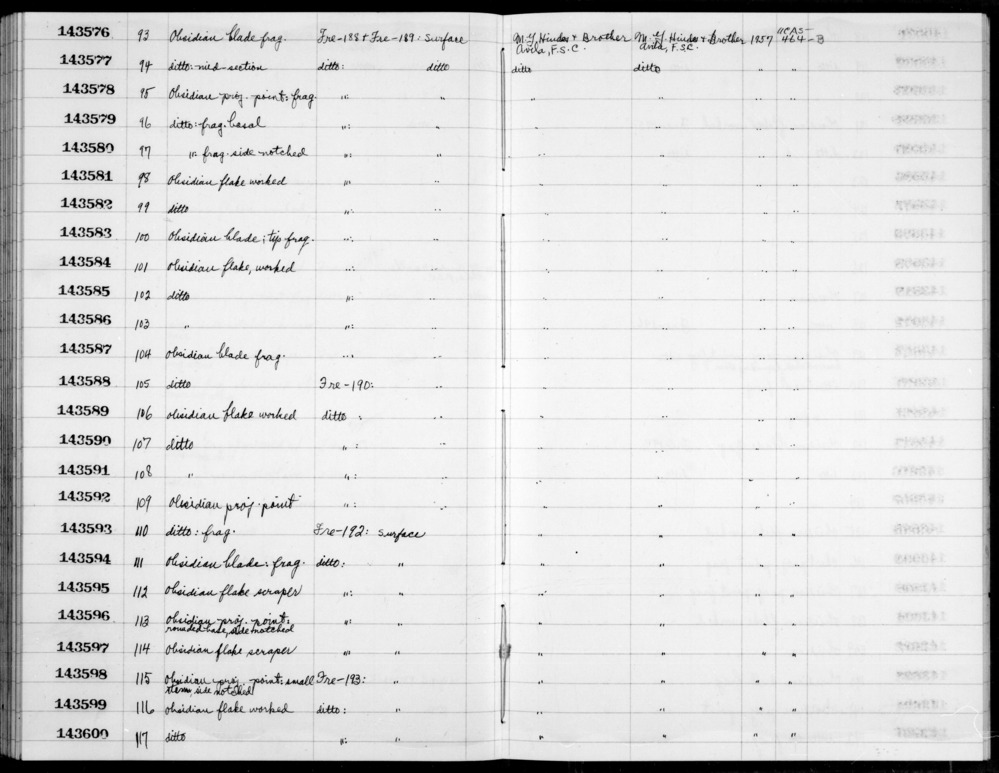 143576 93 Obsidian blade frag. Fre-188 + Fre-189: surface M.Y. Hindes & Brother M.Y. Hindes & Brother 1957 "CAS-
Avila, F.S.C. Avila, F.S.C. 464-B
143577 94 ditto: mid-section ditto: ditto ditto ditto " "
143578 95 Obsidian proj. point: frag. ": " " " " "
143579 96 ditto: frag. basal ": " " " " "
143580 97 ": frag. side notched ": " " " " "
143581 98 Obsidian flake worked ": " " " " "
143582 99 ditto ": " " " " "
143583 100 Obsidian blade; tip frag. ": " " " " "
143584 101 Obsidian flake, worked ": " " " " "
143585 102 ditto ": " " " " "
143586 103 " ": " " " " "
143587 104 obsidian blade frag. ": " " " " "
143588 105 ditto Fre-190: " " " " "
143589 106 obsidian flake worked ditto : " " " " "
143590 107 ditto " : " " " " "
143591 108 " " : " " " " "
143592 109 Obsidian proj. point " : " " " " "
143593 110 ditto: frag. Fre-192: surface " " " "
143594 111 Obsidian blade: frag. ditto: " " " " "
143595 112 Obsidian flake scraper ": " " " " "
143596 113 Obsidian proj. point: ": " " " " "
rounded base, side notched
143597 114 Obsidian flake scraper ": " " " " "
143598 115 Obsidian proj. point: small Fre-193: " " " " "
stem, side notched
143599 116 obsidian flake worked ditto: " " " " "
143600 117 ditto ": " " " " "